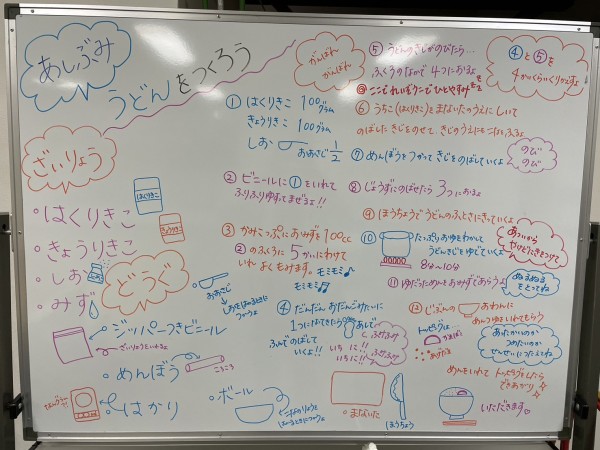 あしぶみ
うどんをつくろう
がんばれ
がんばれ
ざいりょう
・はくりきこ
・きょうりきこ
・しお
・みず
はくりきこ
きょうりきこ
どうぐ
・ジッパーつきビニール
ざいりょうをいれるよ
・めんぼう
ころころ
・はかり
・ボール
おおさじ
① はくりきこ 100グラム
きょうりきこ 100グラム
しお おおさじ 1/2
② ビニールに①をいれて
ふりふりゆすってまぜるよ!!
③ かみこっぷにおみずを100cc
②のふくろに5かいにわけて
いれ よくもみます。
モミモミ♪
モミモミ♪
④ だんだん おだんごみたいに
1つになってきたら あしで
ふんでのばして
いくよ!!
ふみふみ
いちに!!
いちに!!
ふみふみ
⑤ うどんのきじがのびたら…
ふくろのなかで 4つにおるよ
④と⑤を
4かいくらいくりかえすよ
⑥ うちこ(はくりきこ)をまないたのうえにしいて
のばしたきじをのせて、きじのうえにもこなをふるよ
⑦ めんぼうをつかって きじをのばしていくよ
のび
のび
⑧ じょうずにのばせたら 3つにおるよ
⑨ ほうちょうでうどんのふとさにきっていくよ
⑩ たっぷりおゆをわかして
うどんきじをゆでていくよ
8分〜10分
あついから
やけどにきをつけて
⑪ ゆだっためんをおみずであらうよ
ぬるぬる
をとってね
⑫ じぶんの おわんに
めんつゆをいれてもらう
トッピングは
かまぼこ
あげだま
あたたかいのか
つめたいのか
せんせいにつたえてね
めんをいれて トッピングしたら
できあがり
いただきます
・まないた
ほうちょう